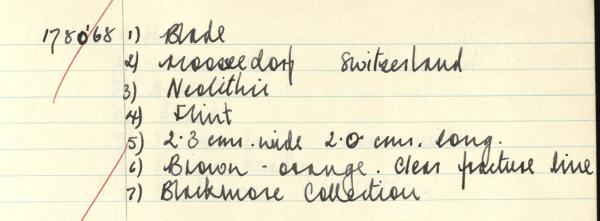 178068 1) Blade
2) Moosedorf Switzerland
3) Neolithic
4) Flint
5) 2.3 cms. wide 2.0 cms. long.
6) Brown - orange. Clear fracture line
7) Blackmore Collection